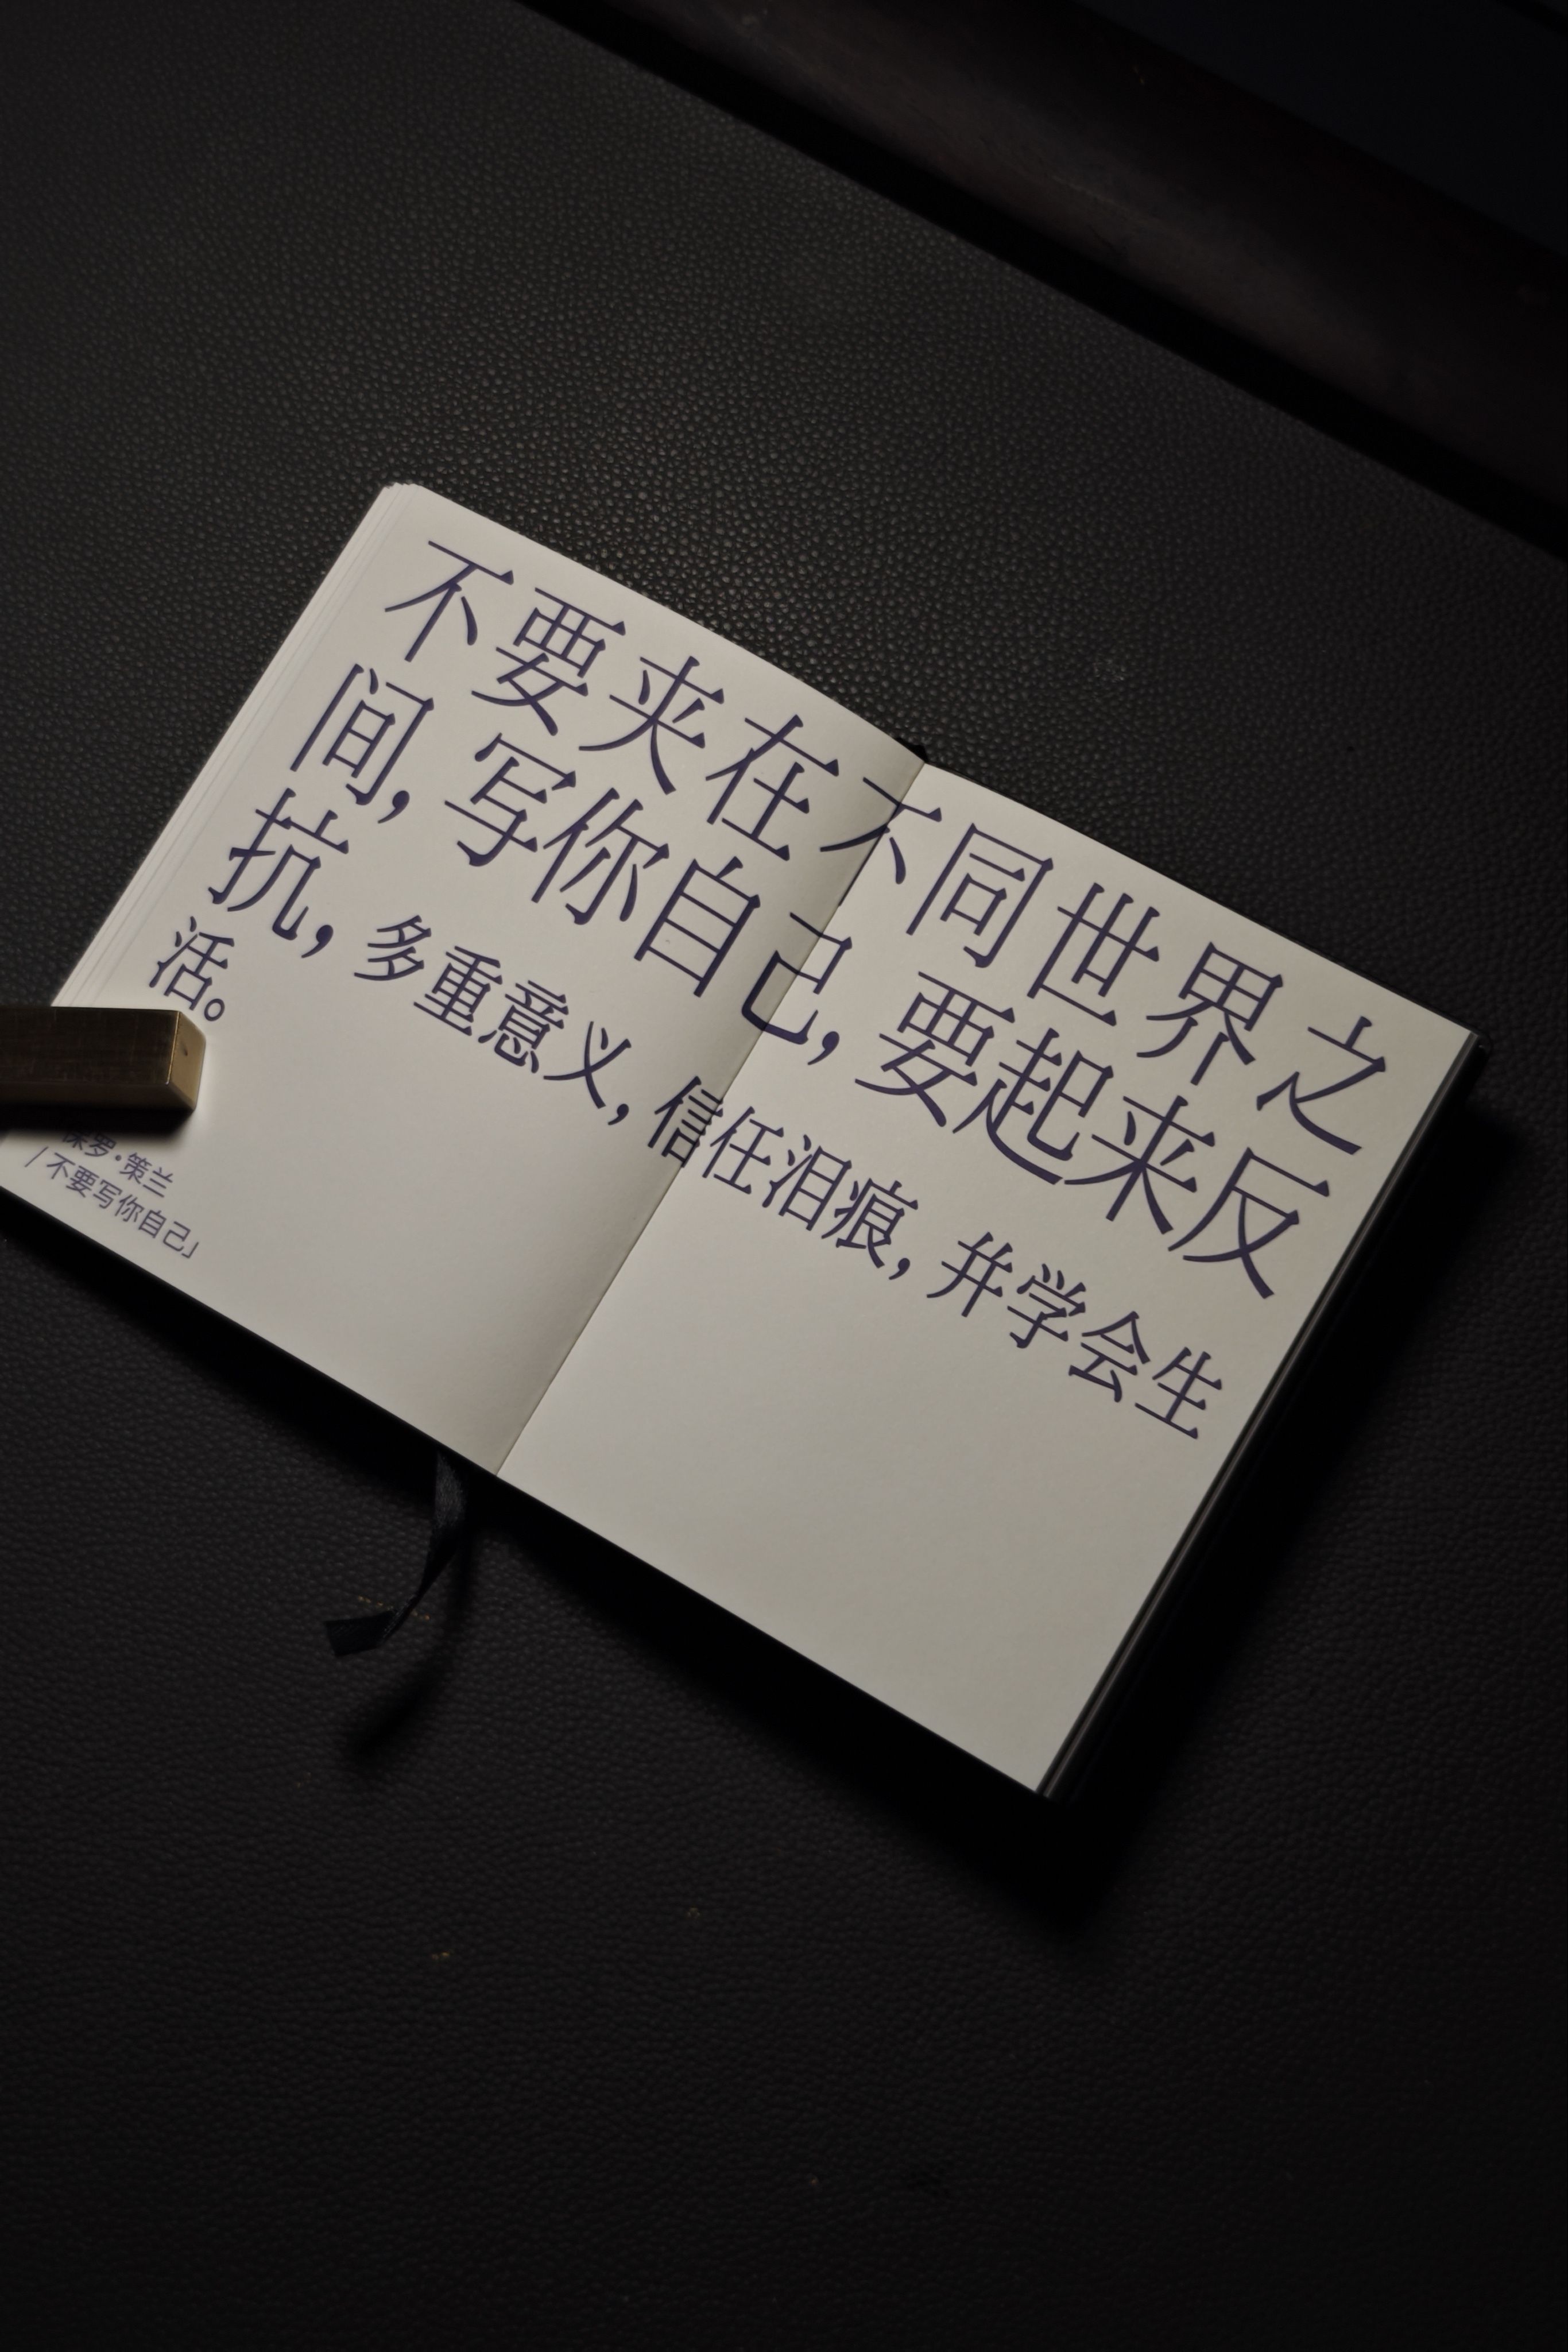 不要夹在不同世界之
间，写你自己，要起来反
抗，多重意义，信任泪痕，并学会生
活。
保罗·策兰
/不要写你自己」